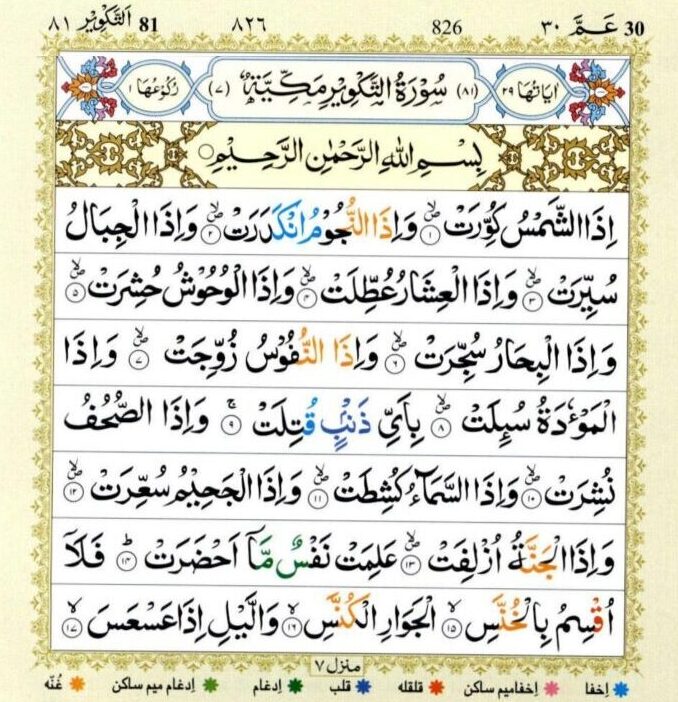 التَّكْوِير ٨١ 81 ٨٢٦ 826 عَمَّ ٣٠ 30
اٰيَاتُهَا ٢٩ (٨١) سُوْرَةُ التَّكْوِيْرِ مَكِّيَّةٌ (٧) رُكُوْعُهَا ١
بِسْمِ اللّٰهِ الرَّحْمٰنِ الرَّحِيْمِ
اِذَا الشَّمْسُ كُوِّرَتْ ۙ﴿١﴾ وَاِذَا النُّجُوْمُ انْكَدَرَتْ ۙ﴿٢﴾ وَاِذَا الْجِبَالُ
سُيِّرَتْ ۙ﴿٣﴾ وَاِذَا الْعِشَارُ عُطِّلَتْ ۙ﴿٤﴾ وَاِذَا الْوُحُوْشُ حُشِرَتْ ۙ﴿٥﴾
وَاِذَا الْبِحَارُ سُجِّرَتْ ۙ﴿٦﴾ وَاِذَا النُّفُوْسُ زُوِّجَتْ ۙ﴿٧﴾ وَاِذَا
الْمَوْءٗدَةُ سُىِٕلَتْ ۙ﴿٨﴾ بِاَىِّ ذَنْۢبٍ قُتِلَتْ ۚ﴿٩﴾ وَاِذَا الصُّحُفُ
نُشِرَتْ ۙ﴿١٠﴾ وَاِذَا السَّمَآءُ كُشِطَتْ ۙ﴿١١﴾ وَاِذَا الْجَحِيْمُ سُعِّرَتْ ۙ﴿١٢﴾
وَاِذَا الْجَنَّةُ اُزْلِفَتْ ۙ﴿١٣﴾ عَلِمَتْ نَفْسٌ مَّاۤ اَحْضَرَتْ ؕ﴿١٤﴾ فَلَاۤ
اُقْسِمُ بِالْخُنَّسِ ۙ﴿١٥﴾ الْجَوَارِ الْكُنَّسِ ۙ﴿١٦﴾ وَالَّيْلِ اِذَا عَسْعَسَ ۙ﴿١٧﴾
منزل ٧
اِخفا اِخفامیم ساکن قلقله قلب اِدغام اِدغام میم ساکن غُنّه